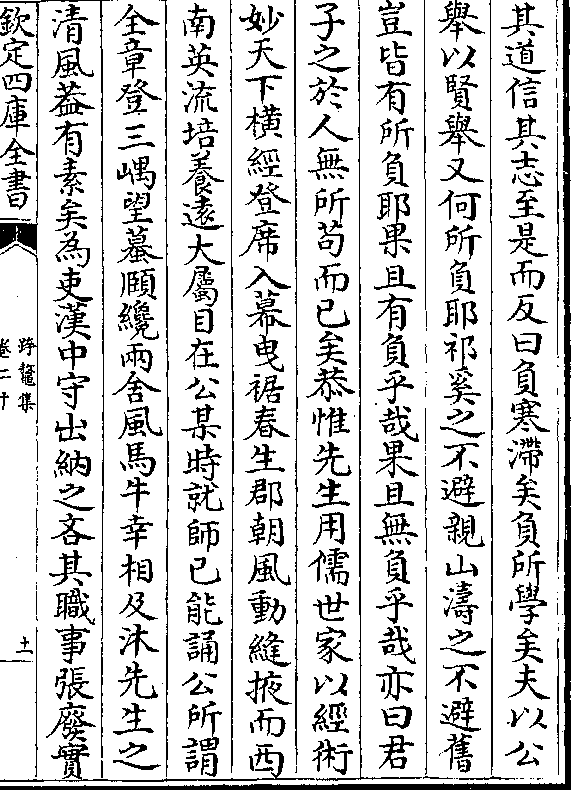 其道信其志至是而反曰負寒滯矣負所學矣夫以公
舉以賢舉又何所負耶祁奚之不避親山濤之不避舊
豈皆有所負耶果且有負乎哉果且無負乎哉亦曰君
子之於人無所苟而已矣恭惟先生用儒世家以經術
妙天下橫經登席入幕曳裾春生郡朝風動縫掖而西
南英流培養遠大屬目在公某時就師已能誦公所謂
全章登三嵎望蟇頤纔兩舍風馬牛幸相及沐先生之
清風葢有素矣為吏漢中守出納之吝其職事張廢實
欽定四庫全書
跨鼇集
卷二十
十一